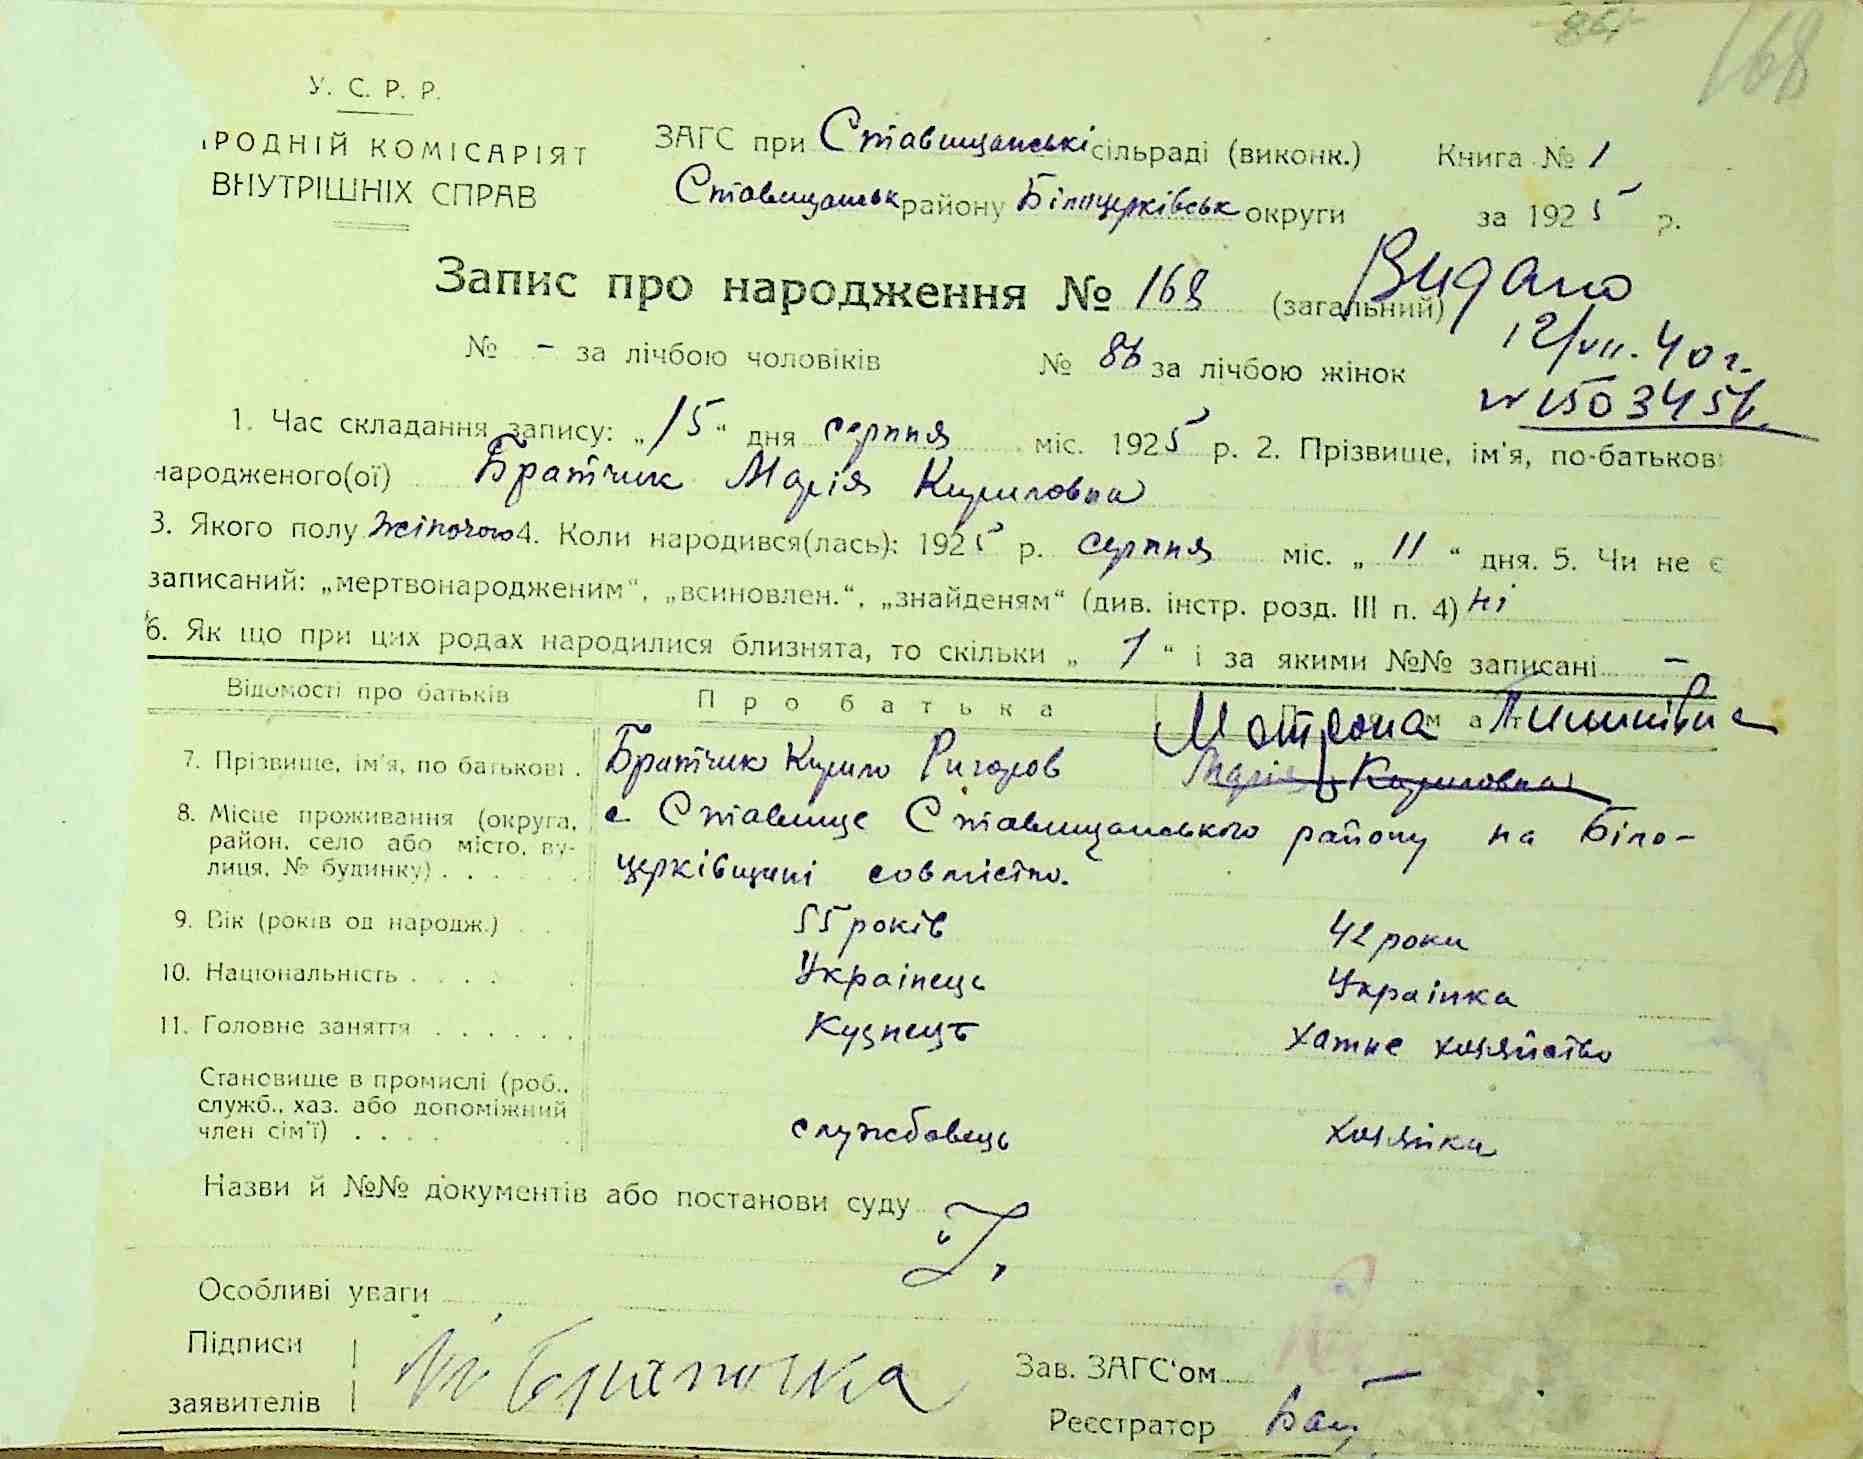 168
У. С. Р. Р.
РОДНІЙ КОМІСАРІЯТ
ВНУТРІШНІХ СПРАВ
ЗАГС при Ставищанські сільраді (виконк.) Книга № 1
Ставищанськ району Білоцерківськ округи за 1925 р.
Запис про народження № 168 (загальний)
Видано
12/VII. 40 г.
№ - за лічбою чоловіків № 86 за лічбою жінок
1. Час складання запису: „15“ дня серпня міс. 1925 р. 2. Прізвище, ім'я, по-батькові
народженого(ої) Братчик Марія Кириловна
3. Якого полу жіночого 4. Коли народився(лась): 1925 р. серпня міс. „11“ дня. 5. Чи не є
записаний: „мертвонародженим“, „всиновлен.“, „знайденям“ (див. інстр. розд. III п. 4) ні
6. Як що при цих родах народилися близнята, то скільки „1“ і за якими №№ записані –
Відомості про батьків Про батька
Мотрона
7. Прізвище, ім'я, по батькові . Братчик Кирило Ригоров Марія Кириловна
8. Місце проживання (округа, с. Ставище Ставищанського району на Біло-
район, село або місто, ву-
лиця, № будинку) . . . . . . церківщині совмістно.
9. Вік (років од народж.) . . 55 років 42 роки
10. Національність . . . . Українець Українка
11. Головне заняття . . . . . . Кузнець хатнє хозяйство
Становище в промислі (роб.,
служб., хаз. або допоміжний
член сім'ї) . . . . службовець хозяйка
Назви й №№ документів або постанови суду
Особливі уваги
Підписи
Зав. ЗАГС'ом
заявителів
Реєстратор